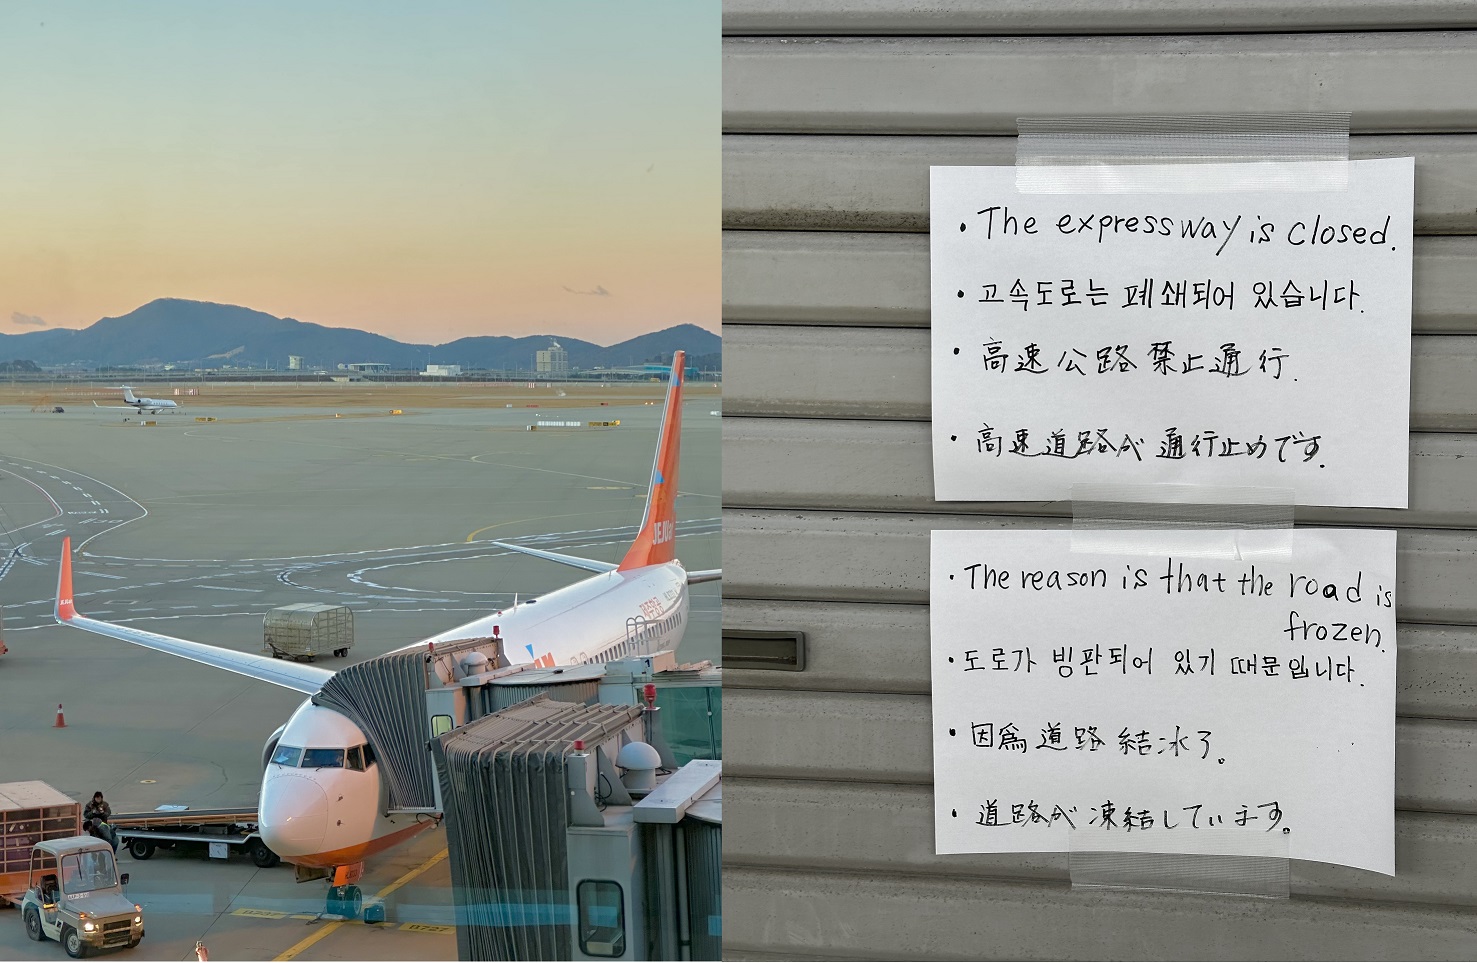 JEJUair
제주항공
B737
B727
• The expressway is closed.
• 고속도로는 폐쇄되어 있습니다.
• 高速公路禁止通行.
• 高速道路が通行止めです.
• The reason is that the road is
frozen.
• 도로가 빙판되어 있기 때문입니다.
• 因爲道路結冰了。
• 道路が凍結しています。